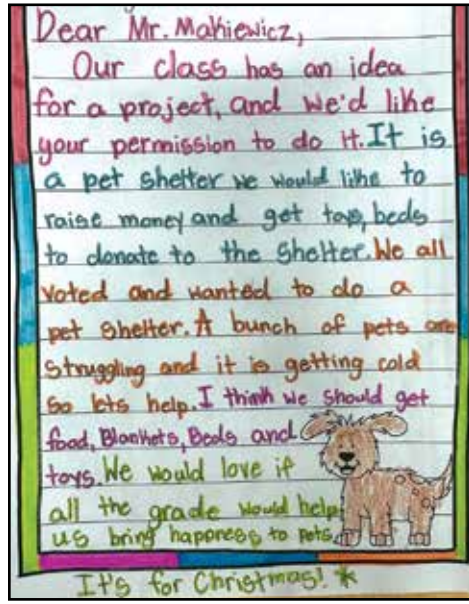 Dear Mr. Makiewicz,
Our class has an idea
for a project, and we'd like
your permission to do it. It is
a pet shelter we would like to
raise money and get toys, beds
to donate to the shelter. We all
voted and wanted to do a
pet shelter. A bunch of pets are
struggling and it is getting cold
so lets help. I think we should get
food, Blankets, Beds and
toys. We would love if
all the grade would help
us bring happness to pets.
It's for Christmas! *